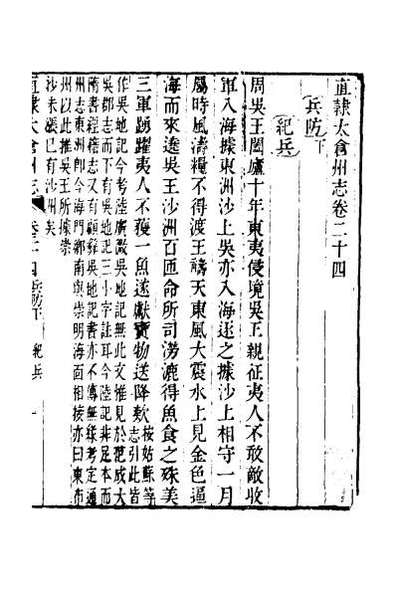 直隸太倉州志卷二十四
兵防下
紀兵
周吳王闔廬十年東夷侵境吳王親征夷人不敢敵收
軍入海據東洲沙上吳亦入海逐之據沙上相守一月
屬時風濤糧不得渡王禱天東風大震水上見金色逼
海而來遶吳王沙洲百匝命所司撈漉得魚食之殊美
三軍踴躍夷人不獲一魚遂獻寶物送降款按姑蘇等志引此皆
作吳地記今考陸廣微吳地記無此文惟見於范成大
吳郡志而下有吳地記三小字註耳今陸記非足本而
隋書經籍志又有顧彝吳地記書亦不傳無緣考定通
州志東洲即今海門鄉南與崇明海面相接亦曰東布
州以此推吳王所據崇
沙未漲已有鄰沙矣
直隸太倉州志 卷二十四 兵防下 紀兵 一